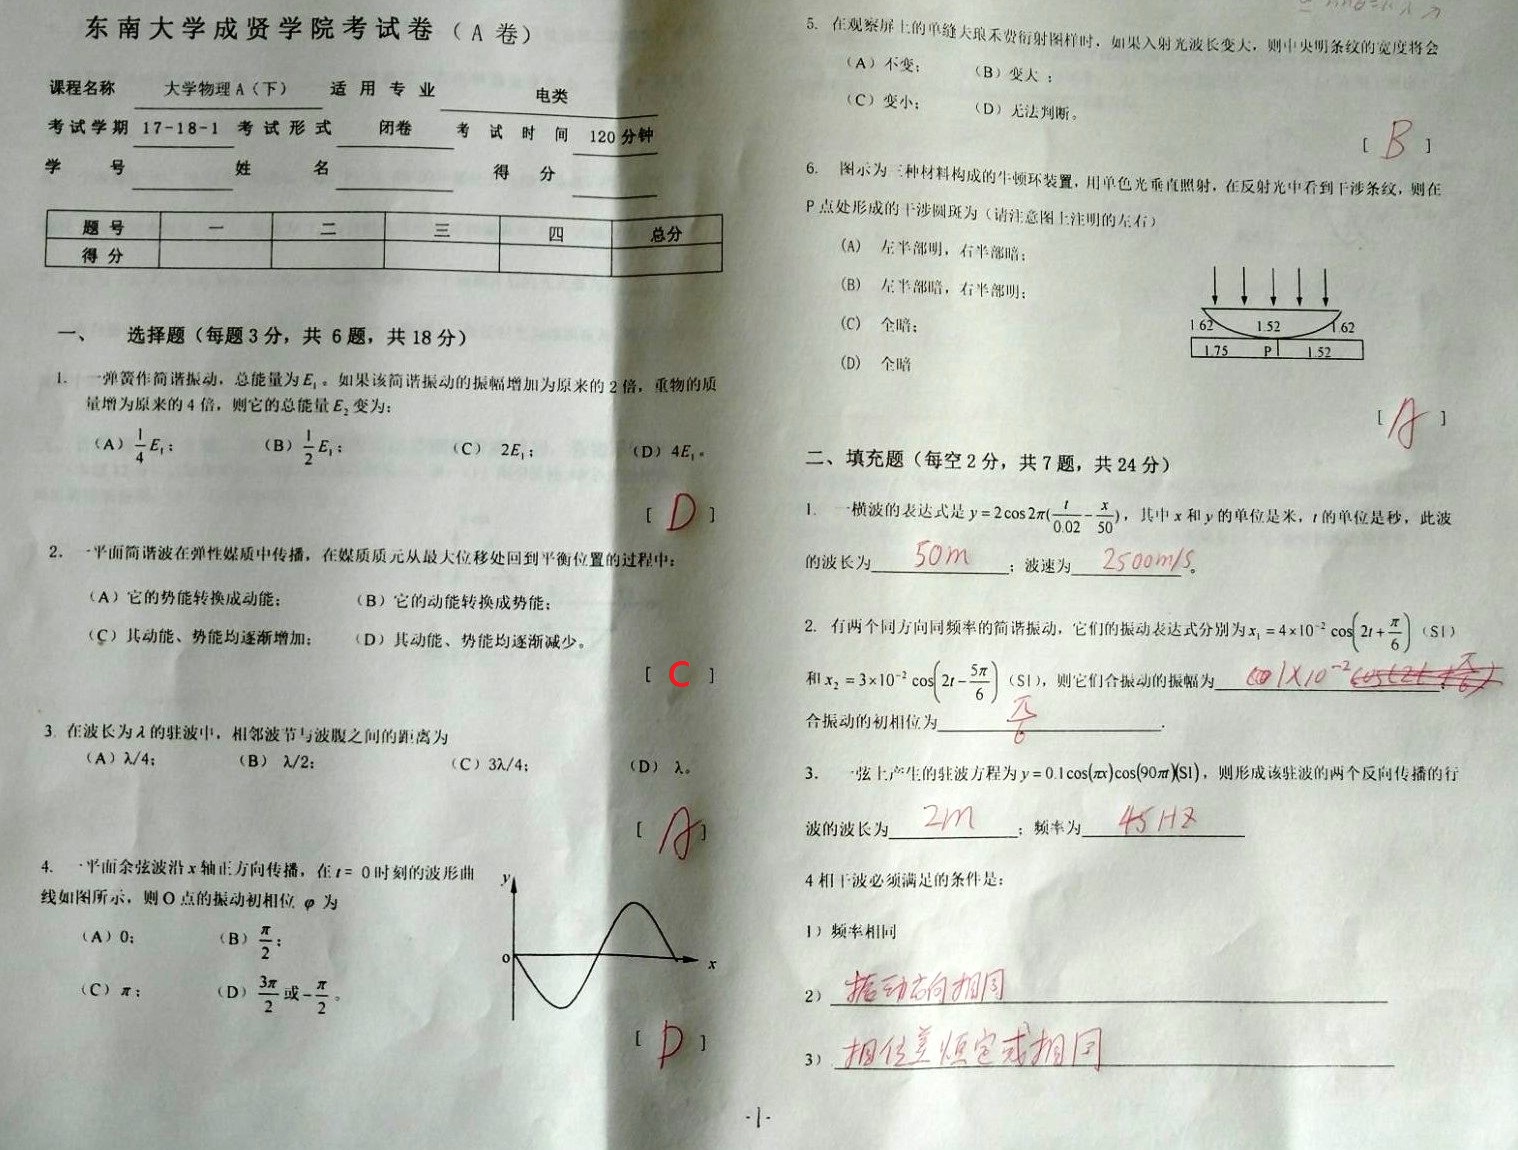 东南大学成贤学院考试卷（A 卷）
课程名称 大学物理 A（下） 适 用 专 业 电类
考 试 学 期 17-18-1 考 试 形 式 闭卷 考 试 时 间 120 分钟
学 号 姓 名 得 分
题 号 一 二 三 四 总分
得 分
一、 选择题（每题 3 分，共 6 题，共 18 分）
1. 一弹簧作简谐振动，总能量为E₁。如果该简谐振动的振幅增加为原来的 2 倍，重物的质
量增为原来的 4 倍，则它的总能量E₂变为：
（A）1/4 E₁； （B）1/2 E₁； （C） 2E₁； （D）4E₁。
[ D ]
2. 一平面简谐波在弹性媒质中传播，在媒质质元从最大位移处回到平衡位置的过程中：
（A）它的势能转换成动能； （B）它的动能转换成势能；
（C）其动能、势能均逐渐增加； （D）其动能、势能均逐渐减少。
[ C ]
3. 在波长为λ的驻波中，相邻波节与波腹之间的距离为
（A）λ/4； （B） λ/2； （C）3λ/4； （D） λ。
[ A ]
4. 一平面余弦波沿 x 轴正方向传播，在 t = 0 时刻的波形曲
线如图所示，则 O 点的振动初相位 φ 为
（A）0； （B）π/2；
（C）π； （D）3π/2 或 -π/2。
y
o x
[ D ]
5. 在观察屏上的单缝夫琅禾费衍射图样时，如果入射光波长变大，则中央明条纹的宽度将会
（A）不变； （B）变大；
（C）变小； （D）无法判断。
[ B ]
6. 图示为三种材料构成的牛顿环装置，用单色光垂直照射，在反射光中看到干涉条纹，则在
P 点处形成的干涉圆斑为（请注意图上注明的左右）
(A) 左半部明，右半部暗；
(B) 左半部暗，右半部明；
(C) 全暗；
(D) 全暗
1.62 1.52 1.62
1.75 P 1.52
[ A ]
二、填充题（每空 2 分，共 7 题，共 24 分）
1. 一横波的表达式是 y = 2cos2π(t/0.02 - x/50)，其中 x 和 y 的单位是米，t 的单位是秒，此波
的波长为 50m ；波速为 2500m/s 。
2. 有两个同方向同频率的简谐振动，它们的振动表达式分别为 x₁ = 4×10⁻² cos(2t + π/6)（SI）
和 x₂ = 3×10⁻² cos(2t - 5π/6)（SI），则它们合振动的振幅为 1×10⁻²
合振动的初相位为 π/6 .
3. 一弦上产生的驻波方程为 y = 0.1cos(πx)cos(90πt)(SI)，则形成该驻波的两个反向传播的行
波的波长为 2m ；频率为 45Hz
4 相干波必须满足的条件是：
1）频率相同
2）振动方向相同
3）相位差恒定或相同
-1-